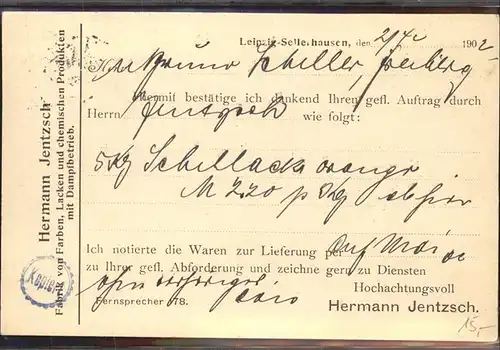 Hermann Jentzsch
Fabrik von Farben, Lacken und chemischen Produkten
mit Dampfbetrieb.
Leipzig-Sellerhausen, den 2/4 1902
Bruno Schiller, Freiberg
Hiermit bestätige ich dankend Ihren gefl. Auftrag durch
Herrn Jentzsch wie folgt:
5 Kg Schellack orange
M 2.20 p Kg ab hier
Ich notierte die Waren zur Lieferung per Mai
zu Ihrer gefl. Abforderung und zeichne gern zu Diensten
Hochachtungsvoll
Fernsprecher 78.
Hermann Jentzsch.
Kopiert
15,-